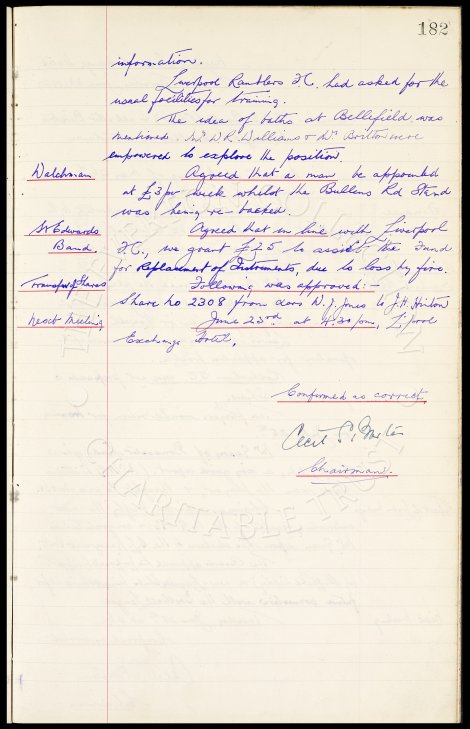 182
information.
Liverpool Ramblers F.C. had asked for the
usual facilities for training.
The idea of baths at Bellefield was
mentioned. Mr W.R. Williams & Mr Britton were
empowered to explore the position.
Watchman Agreed that a man be appointed
at £3 per week whilst the Bullens Rd Stand
was being re-backed.
St Edwards Agreed that in line with Liverpool
Band. F.C., we grant £25 to assist the Fund
for Replacement of Instruments, due to loss by fire.
Transfer of Shares Following was approved:-
Share No 2308 from W. J. Jones to J.H.
Next Meeting June 23rd at 4.30pm, L.pool
Exchange Hotel.
Confirmed as correct
Cecil S.
Chairman.
CHARITABLE TRUST